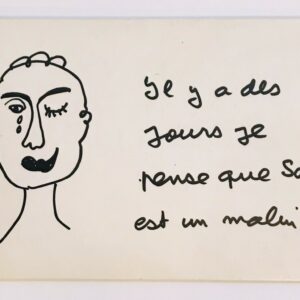 Il y a des
jours je
pense que
est un malin